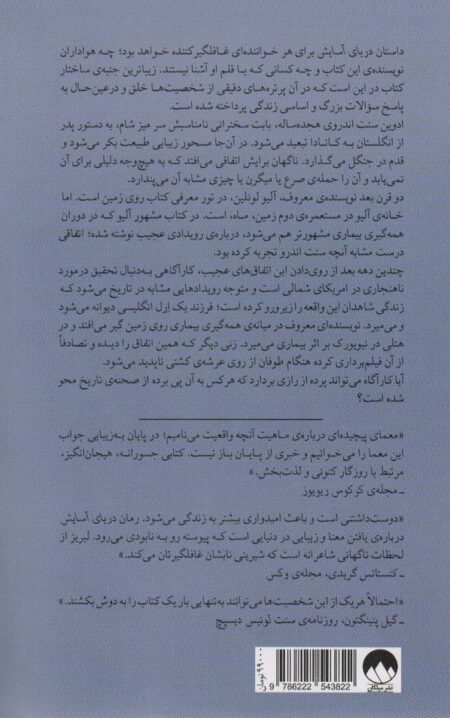 داستان دریای آسایش برای هر خواننده‌ای غافلگیرکننده خواهد بود؛ چه هواداران
نویسنده‌ی این کتاب و چه کسانی که با قلم او آشنا نیستند. زیباترین جنبه‌ی ساختار
کتاب در این است که در آن پرتره‌های دقیقی از شخصیت‌ها خلق و درعین‌حال به
پاسخ سؤالات بزرگ و اساسی زندگی پرداخته شده است.
ادوین سنت اندروی هجده‌ساله، بابت سخنرانی نامناسبش سر میز شام، به دستور پدر
از انگلستان به کانادا تبعید می‌شود. در آن‌جا مسحور زیبایی طبیعت بکر می‌شود و
قدم در جنگل می‌گذارد. ناگهان برایش اتفاقی می‌افتد که به هیچ‌وجه دلیلی برای آن
نمی‌یابد و آن را حمله‌ی صرع یا میگرن یا چیزی مشابه آن می‌پندارد.
دو قرن بعد نویسنده‌ی معروف، آلیو لولین، در تور معرفی کتاب روی زمین است. اما
خانه‌ی آلیو در مستعمره‌ی دوم زمین، ماه، است. در کتاب مشهور آلیو که در دوران
همه‌گیری بیماری مشهورتر هم می‌شود، درباره‌ی رویدادی عجیب نوشته شده؛ اتفاقی
درست مشابه آنچه سنت اندرو تجربه کرده بود.
چندین دهه بعد از روی‌دادن این اتفاق‌های عجیب، کارآگاهی به‌دنبال تحقیق درمورد
ناهنجاری در امریکای شمالی است و متوجه رویدادهایی مشابه در تاریخ می‌شود که
زندگی شاهدان این واقعه را زیرورو کرده است؛ فرزند یک اِرل انگلیسی دیوانه می‌شود
و می‌میرد. نویسنده‌ای معروف در میانه‌ی همه‌گیری بیماری روی زمین گیر می‌افتد و در
هتلی در نیویورک بر اثر بیماری می‌میرد. زنی دیگر که همین اتفاق را دیده و تصادفاً
از آن فیلم‌برداری کرده هنگام طوفان از روی عرشه‌ی کشتی ناپدید می‌شود.
آیا کارآگاه می‌تواند پرده از رازی بردارد که هرکس به آن پی برده از صحنه‌ی تاریخ محو
شده است؟
«معمای پیچیده‌ای درباره‌ی ماهیت آنچه واقعیت می‌نامیم؛ در پایان به‌زیبایی جواب
این معما را می‌خوانیم و خبری از پایـان بـاز نیست. کتابی جسورانه، هیجان‌انگیز،
مرتبط با روزگار کنونی و لذت‌بخش.»
ـ مجله‌ی کرکوس ریویوز
«دوست‌داشتنی است و باعث امیدواری بیشتر به زندگی می‌شود. رمان دریای آسایش
درباره‌ی یافتن معنا و زیبایی در دنیایی است کـه پیوسته رو بـه نابودی می‌رود. لبریز از
لحظات ناگهانی شاعرانه است که شیرینی نابشان غافلگیرتان می‌کند.»
ـ کنستانس گریدی، مجله‌ی وکس
«احتمالاً هریک از این شخصیت‌ها می‌توانند به‌تنهایی بار یک کتاب را به دوش بکشند.»
ـ گیل پنینگتون، روزنامه‌ی سنت لوئیس دیسپچ
۹۹۰۰۰ تومان
9 786222 543822
نشر میلکان